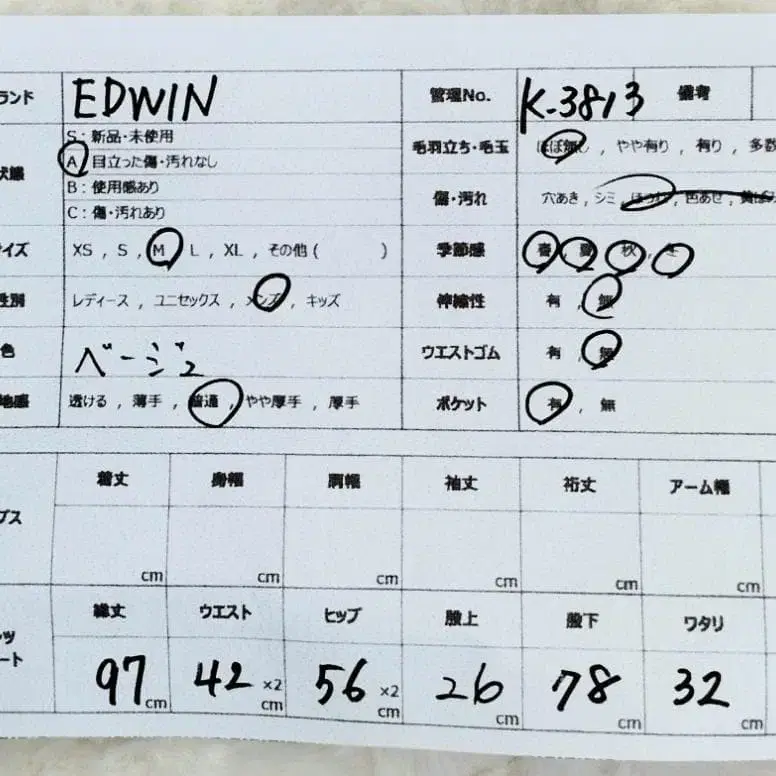 ランド EDWIN 管理No. K-3813 備考
状態 S：新品・未使用
A：目立った傷・汚れなし
B：使用感あり
C：傷・汚れあり
毛羽立ち・毛玉 ほぼ無し , やや有り , 有り , 多数
傷・汚れ 穴あき , シミ , ほつれ , 色あせ ,
イズ XS , S , M , L , XL , その他 ( ) 季節感 春 , 夏 , 秋 , 冬
性別 レディース , ユニセックス , メンズ , キッズ 伸縮性 有 , 無
色 ベージュ ウエストゴム 有 , 無
地感 透ける , 薄手 , 普通 , やや厚手 , 厚手 ポケット 有 , 無
着丈 身幅 肩幅 袖丈 裄丈 アーム幅
プス cm cm cm cm cm cm
総丈 ウエスト ヒップ 股上 股下 ワタリ
ンツ
ート 97 cm 42 ×2 cm 56 ×2 cm 26 cm 78 cm 32 cm